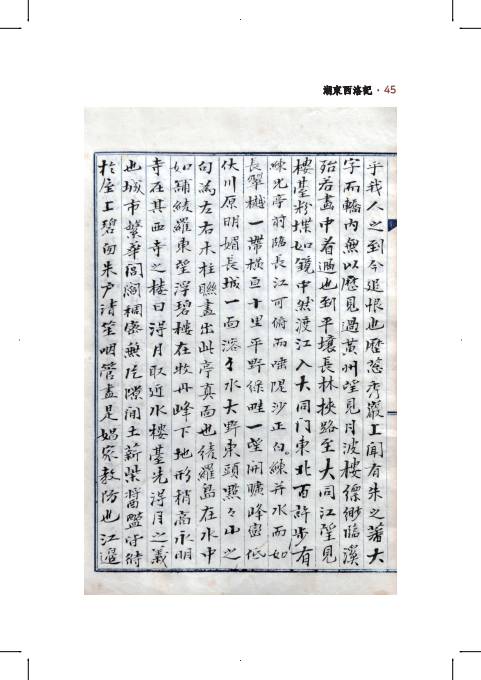 湖東西洛記 · 45
乎我人之到今追恨也歷葱秀巖上聞有朱之蕃大
字而轎內無以歷見過黃州望見月波樓縹緲臨溪
殆若畫中看過也到平壤長林挾路至大同江望見
樓臺粉堞如鏡中然渡江入大同門東北百許步有
練光亭前臨長江可俯而唾隄沙正白練井水而如
長翠樾一帶橫亘十里平野綠畦一望開曠峰巒低
伏川原明媚長城一面溶々水大野東頭點々山之
句爲左右木柱聯盡出此亭眞面也綾羅島在水中
如鋪綾羅東望浮碧樓在牧丹峰下地形稍高永明
寺在其西寺之樓曰得月取近水樓臺先得月之義
也城市繁華閭閻稠密無尺隙閒土薪柴醬鹽守待
於屋上碧窓朱戶淸笙咽管盡是娼家敎防也江邊